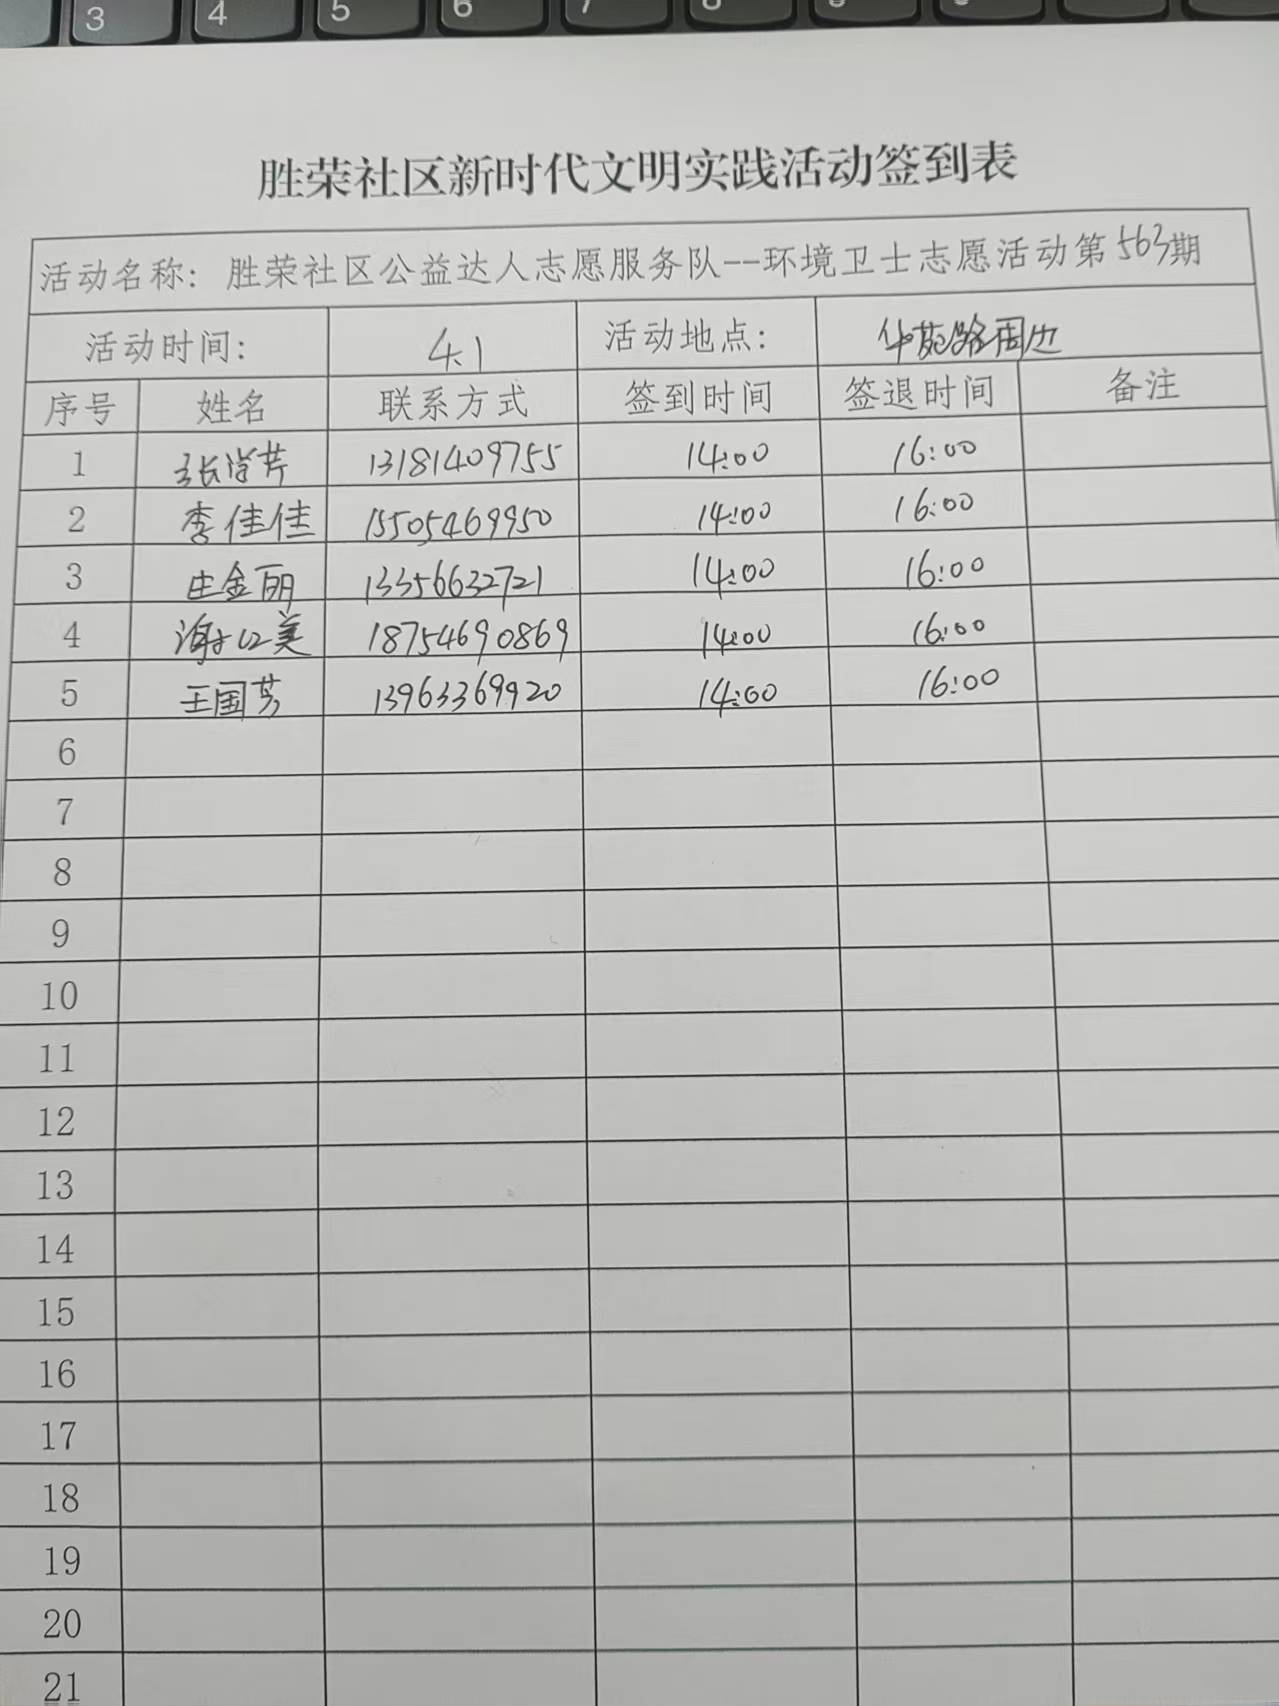 3 4 5 6 7 8
胜荣社区新时代文明实践活动签到表
活动名称: 胜荣社区公益达人志愿服务队--环境卫士志愿活动第563期
活动时间: 4.1 活动地点: 华苑路周边
序号 姓名 联系方式 签到时间 签退时间 备注
1 张學芹 13181409755 14:00 16:00
2 李佳佳 15505469950 14:00 16:00
3 庄金丽 13356632721 14:00 16:00
4 谢红美 18754690869 14:00 16:00
5 王国芳 13963369920 14:00 16:00
6
7
8
9
10
11
12
13
14
15
16
17
18
19
20
21